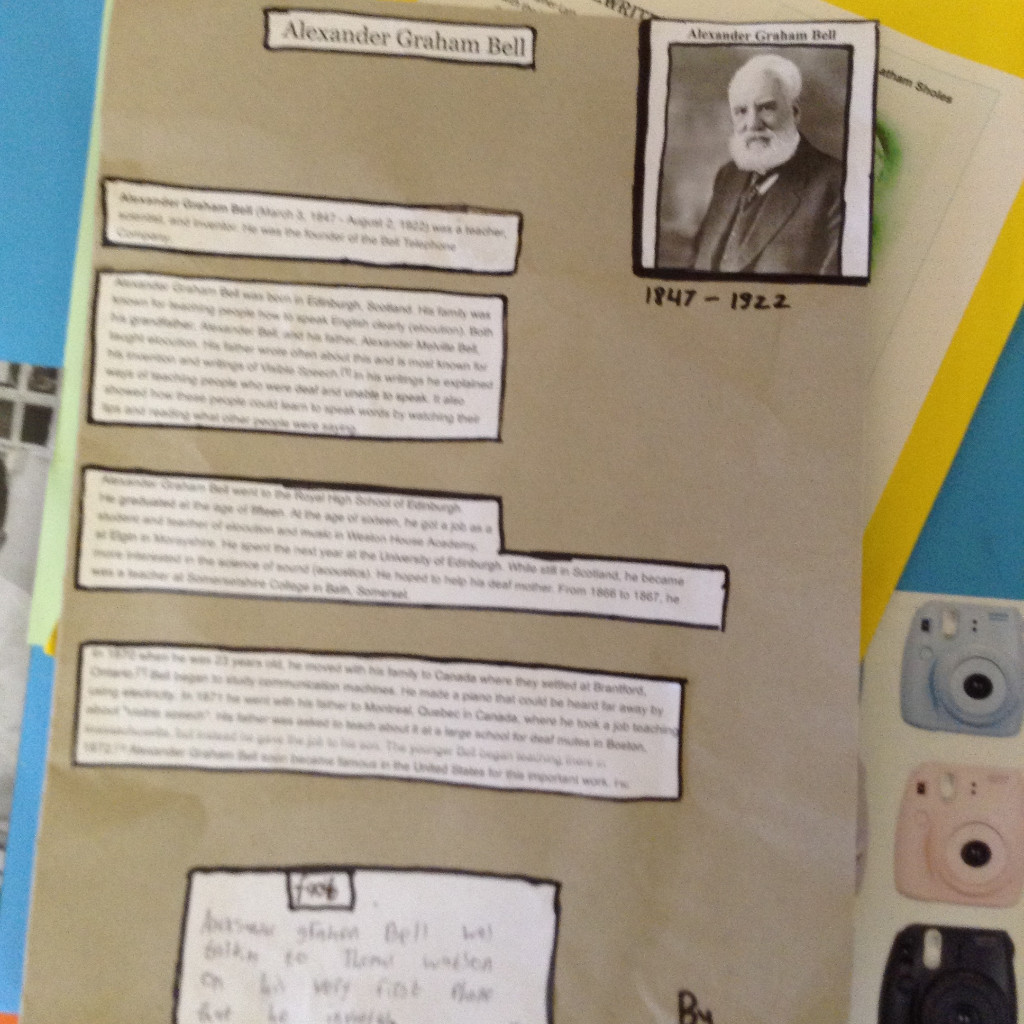 WRIT
Alexander Graham Bell
Alexander Graham Bell
atham Sholes
1847 - 1922
Alexander Graham Bell (March 3, 1847 - August 2, 1922) was a teacher,
scientist, and inventor. He was the founder of the Bell Telephone
Company.
Alexander Graham Bell was born in Edinburgh, Scotland. His family was
known for teaching people how to speak English clearly (elocution). Both
his grandfather, Alexander Bell, and his father, Alexander Melville Bell,
taught elocution. His father wrote often about this and is most known for
his invention and writings of Visible Speech.[1] In his writings he explained
ways of teaching people who were deaf and unable to speak. It also
showed how these people could learn to speak words by watching their
lips and reading what other people were saying.
Alexander Graham Bell went to the Royal High School of Edinburgh.
He graduated at the age of fifteen. At the age of sixteen, he got a job as a
student and teacher of elocution and music in Weston House Academy,
at Elgin in Morayshire. He spent the next year at the University of Edinburgh. While still in Scotland, he became
more interested in the science of sound (acoustics). He hoped to help his deaf mother. From 1866 to 1867, he
was a teacher at Somersetshire College in Bath, Somerset.
In 1870 when he was 23 years old, he moved with his family to Canada where they settled at Brantford,
Ontario. Bell began to study communication machines. He made a piano that could be heard far away by
using electricity. In 1871 he went with his father to Montreal, Quebec in Canada, where he took a job teaching
about "visible speech". His father was asked to teach about it at a large school for deaf mutes in Boston,
Massachusetts, but instead he gave the job to his son. The younger Bell began teaching there in
1872. Alexander Graham Bell soon became famous in the United States for this important work. He
fact
Bell
to watson
on very first Phone
that he
By